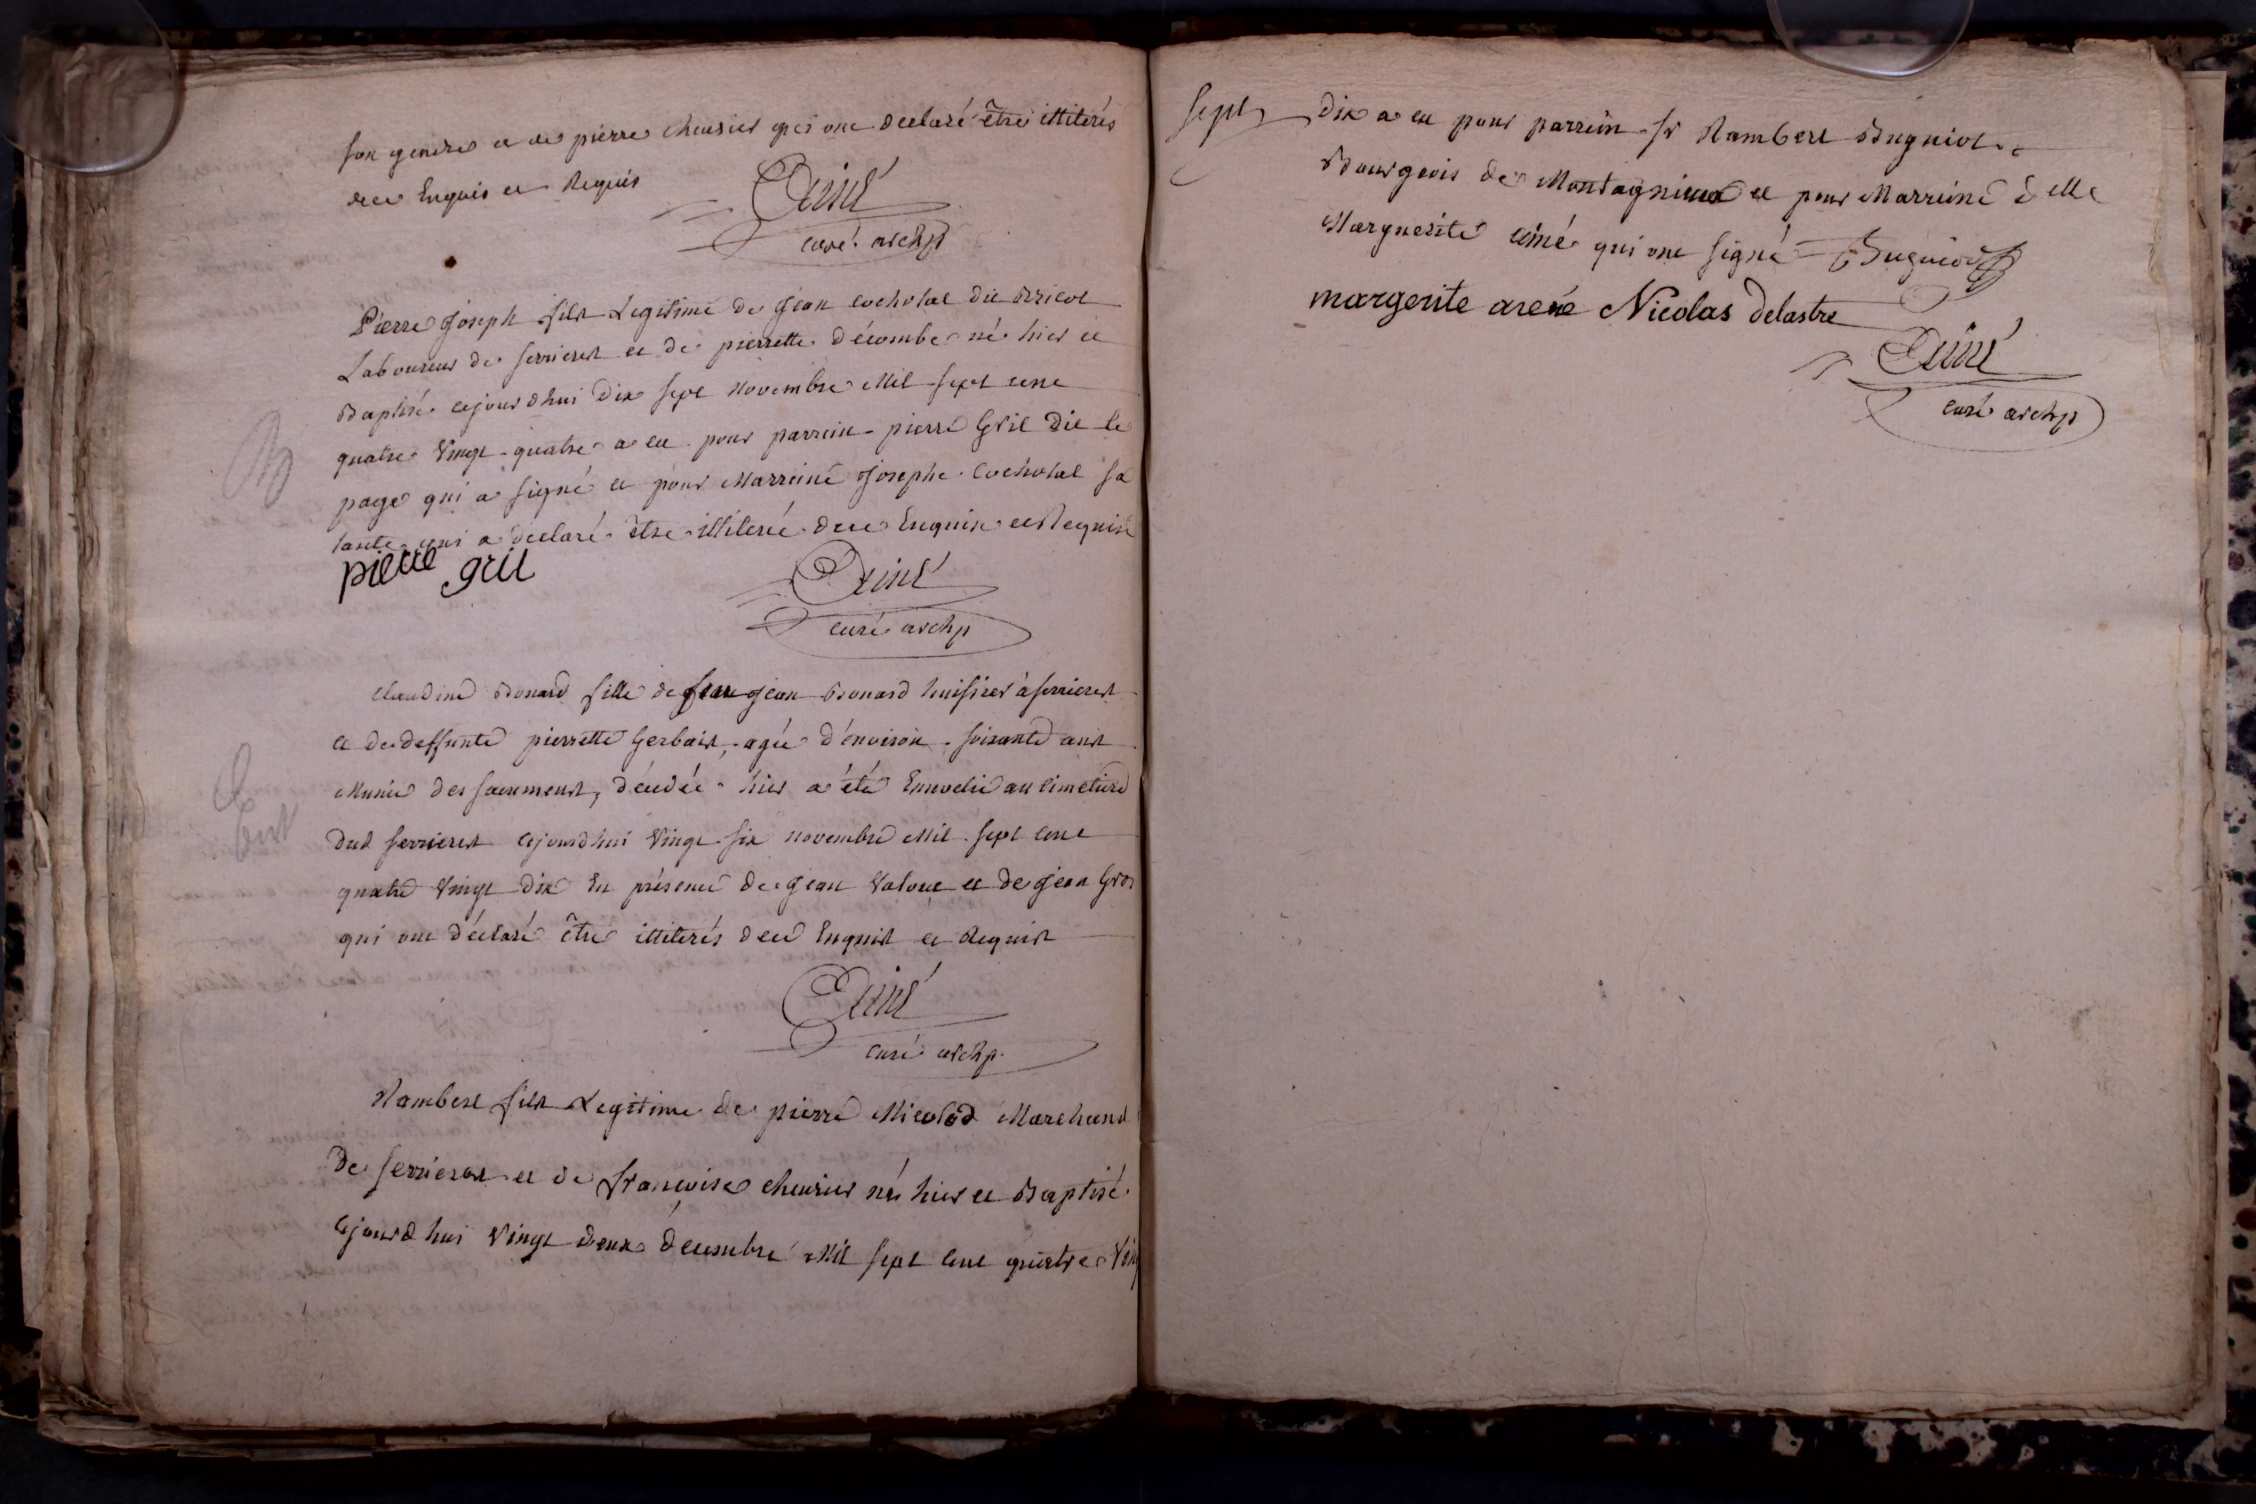 son gendre et de pierre chevrier qui ont declaré être illiterés
de ce Enquis et Requis
Curé archp
Pierre joseph fils Legitime de jean cochotat dit Bricot
Laboureur de serrieres et de pierrette décombe né hier et
Baptisé cejourdhui dix sept novembre Mil sept cent
quatre vingt quatre a eu pour parrein pierre Gril dit le
page qui a signé et pour Marreine josephe cochotat sa
tante qui a declaré être illiterée de ce Enquise et Requise
pierre gril
curé archp
B
claudine Bonard fille de jean Bonard huissier à serrieres
et de deffunte pierrette Gerbais, agée d'environ soixante ans
Munie des sacremens, décédée hier a été Ensevelie au cimetiere
dud serrieres cejourdhui vingt six novembre Mil sept cent
quatre vingt dix En présence de jean valoue et de jean Gros
qui ont déclaré être illiterés de ce Enquis et Requis
curé archp.
Rambert fils Legitime de pierre Micolod Marchand
de serrieres et de françoise chevrier né hier et Baptisé
cejourdhui vingt deux décembre Mil sept cent quatre vingt
sept dix a eu pour parrein Sr Rambert Buguiot
Bourgeois de Montagnieux et pour Marreine delle
Marguerite aimé qui ont signé Buguiot
margerite arene Nicolas delastre
curé archp